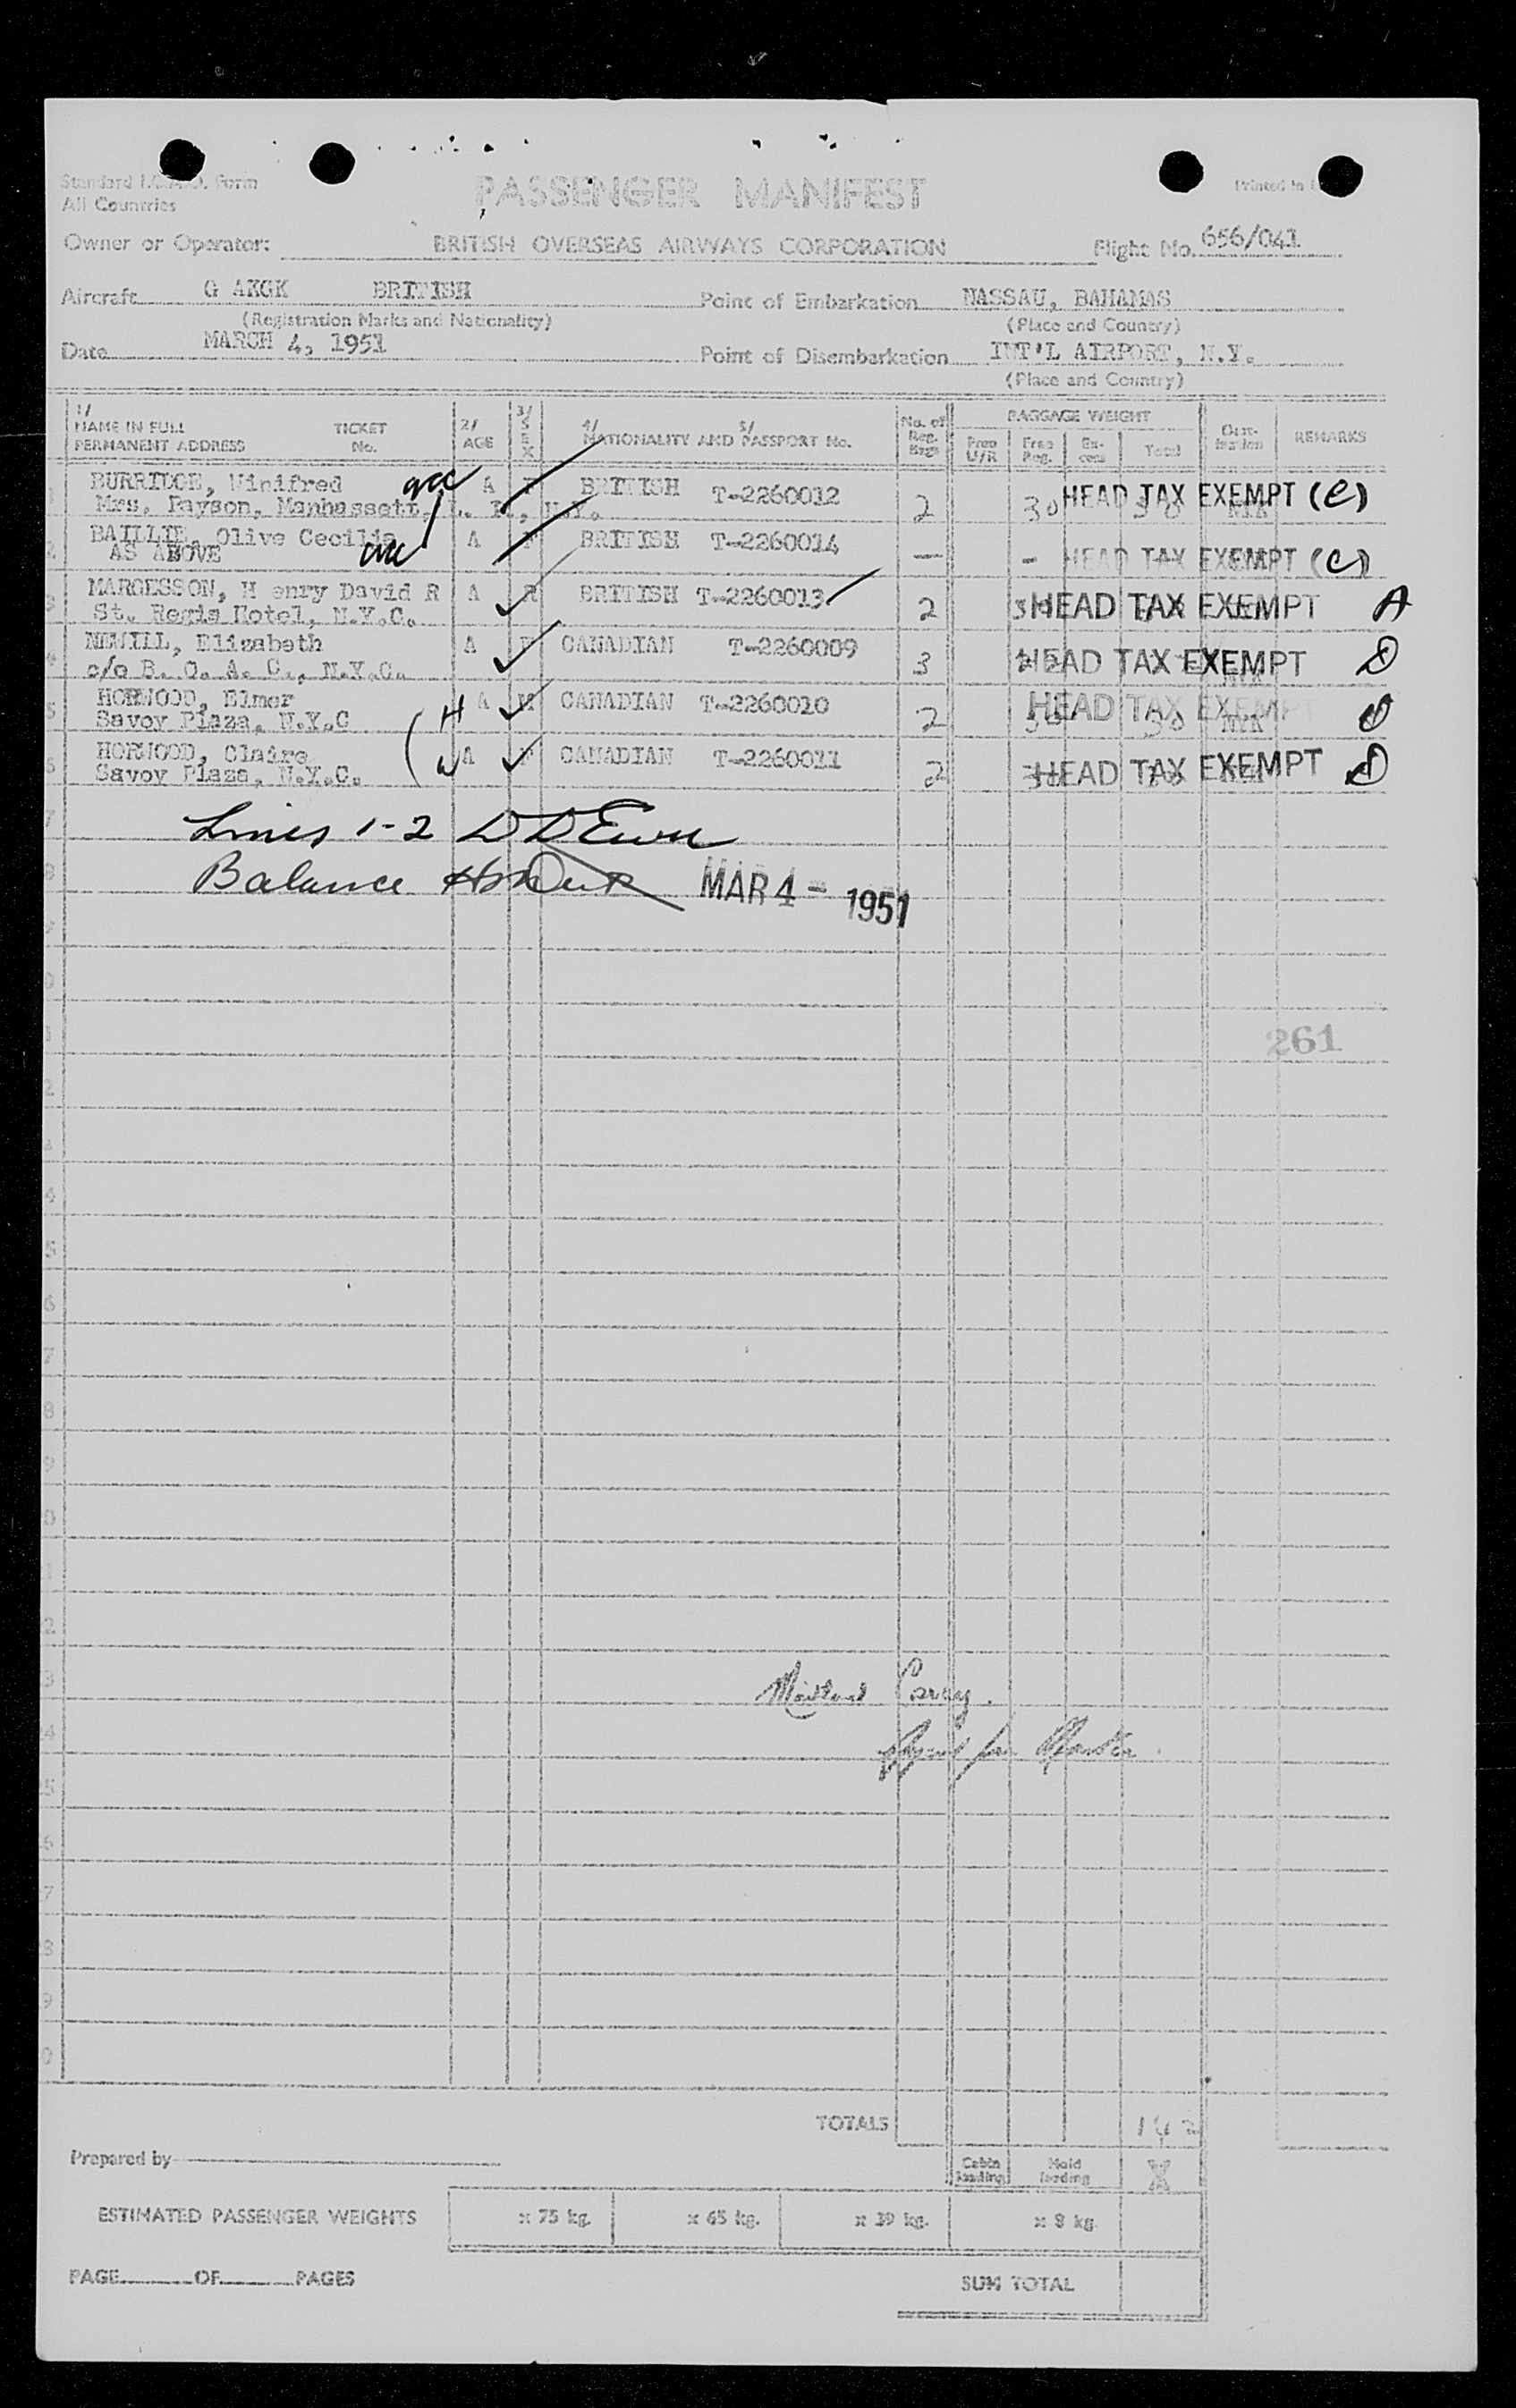 Standard I.C.A.O. Form
All Countries
PASSENGER MANIFEST
Printed in
Owner or Operator: BRITISH OVERSEAS AIRWAYS CORPORATION Flight No. 656/041
Aircraft G AKGK BRITISH Point of Embarkation NASSAU, BAHAMAS
(Registration Marks and Nationality) (Place and Country)
Date MARCH 4, 1951 Point of Disembarkation INT'L AIRPORT, N.Y.
(Place and Country)
1/ NAME IN FULL PERMANENT ADDRESS TICKET No. 2/ AGE 3/ SEX 4/ NATIONALITY AND 5/ PASSPORT No. No. of Reg. Bags BAGGAGE WEIGHT Free U/R Free Reg. Ex-cess Total Dest-ination REMARKS
BURRIDGE, Winifred A F BRITISH T-2260012 2 30 HEAD TAX EXEMPT (C)
Mrs. Payson, Manhassett, L. I., N.Y.
BAILLIE, Olive Cecilia A F BRITISH T-2260014 — - HEAD TAX EXEMPT (C)
AS ABOVE
MARGESSON, H enry David R A BRITISH T-2260013 2 HEAD TAX EXEMPT A
St. Regis Hotel, N.Y.C.
NEWILL, Elizabeth A F CANADIAN T-2260009 3 HEAD TAX EXEMPT D
c/o B. O. A. C., N.Y.C.
HORWOOD, Elmer H A M CANADIAN T-2260010 2 30 HEAD TAX EXEMPT 30 NYK D
Savoy Plaza, N.Y.C
HORWOOD, Claire W A F CANADIAN T-2260011 2 HEAD TAX EXEMPT D
Savoy Plaza, N.Y.C.
Lines 1-2
Balance MAR 4 - 1951
261
Agent for Master.
TOTALS 142
Prepared by Cabin loading Hold loading
ESTIMATED PASSENGER WEIGHTS x 75 kg. x 65 kg. x 39 kg. x 8 kg.
PAGE OF PAGES SUM TOTAL